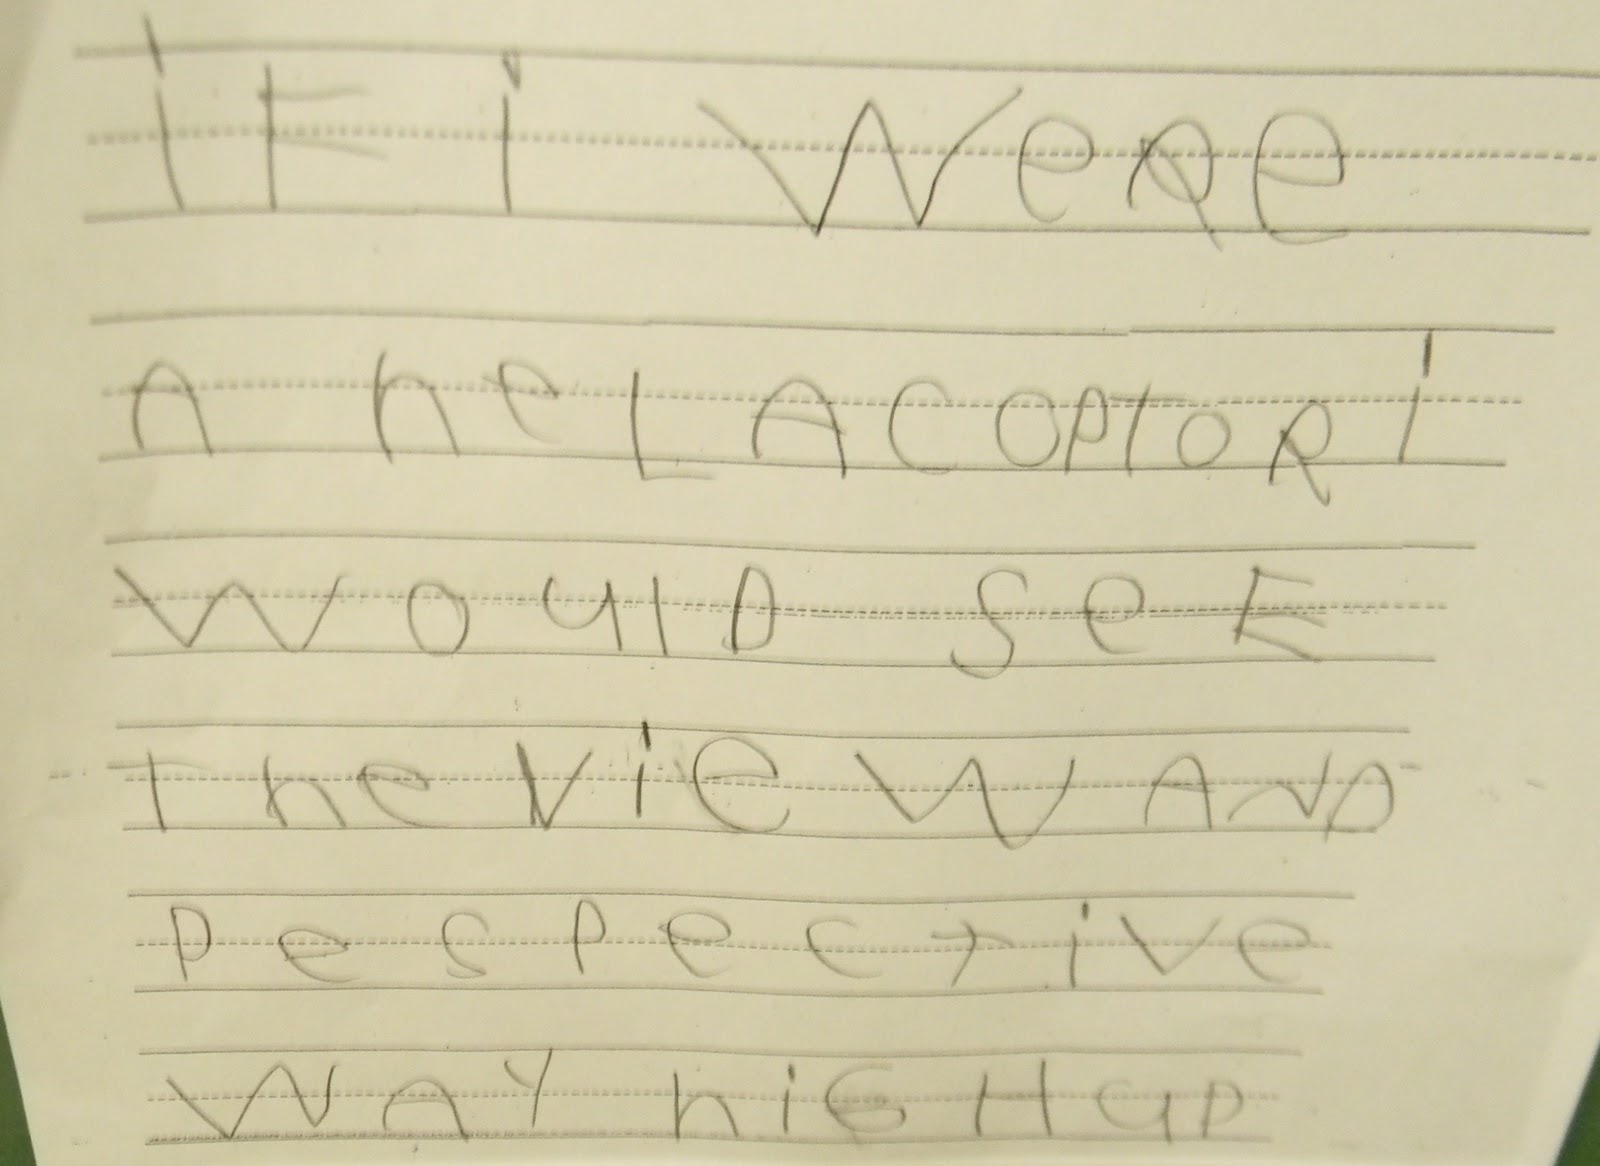 iF i WeRe
A heLACOPTORi
WOulD SeE
TheVieW AND
PeSPecTive
WAY hiGH uP